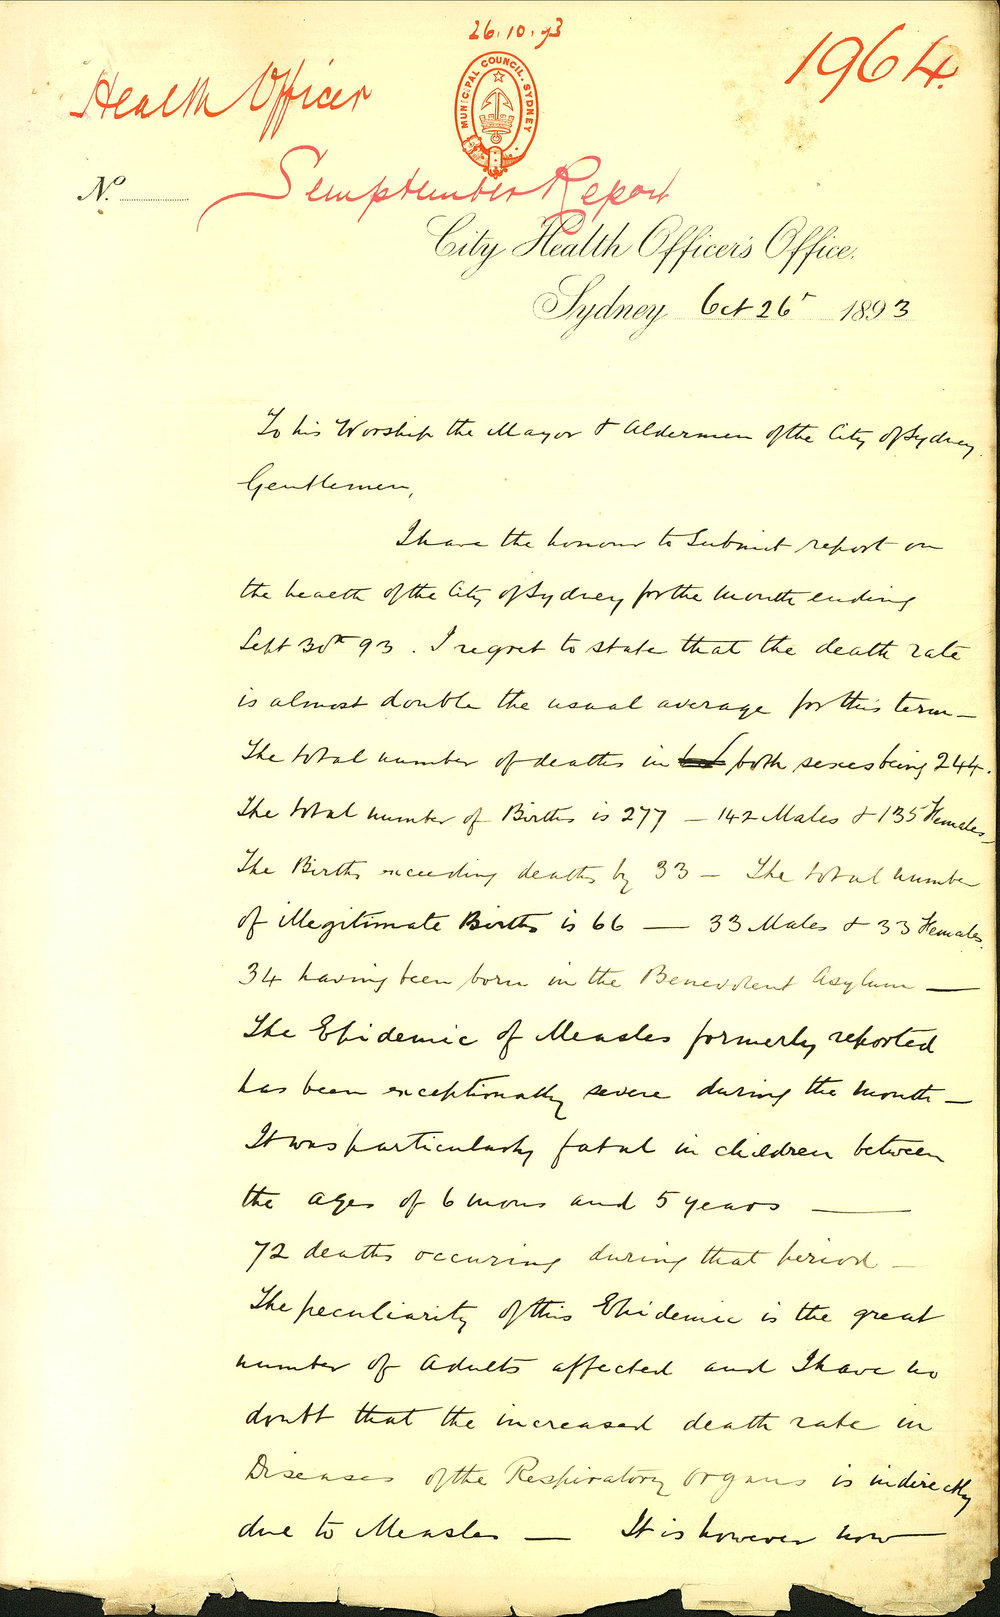 26.10.93
1964.
Health Officer
MUNICIPAL COUNCIL. SYDNEY
No.
Semptember Report
City Health Officer's Office.
Sydney Oct 26r 1893
To his Worship the Mayor & Aldermen of the City of Sydney.
Gentlemen,
I have the honour to Submit report on
the health of the City of Sydney for the month ending
Sept 30th 93. I regret to state that the death rate
is almost double the usual average for this term —
The total number of deaths in both sexes being 244.
The total number of Births is 277 — 142 Males & 135 Females —
The Births exceeding deaths by 33 — The total number
of illegitimate Births is 66 — 33 Males & 33 Females.
34 having been born in the Benevolent Asylum —
The Epidemic of Measles formerly reported
has been exceptionally severe during the month —
It was particularly fatal in children between
the ages of 6 mons and 5 years —
72 deaths occuring during that period —
The peculiarity of this Epidemic is the great
number of Adults affected and I have no
doubt that the increased death rate in
Diseases of the Respiratory organs is indirectly
due to Measles — It is however now